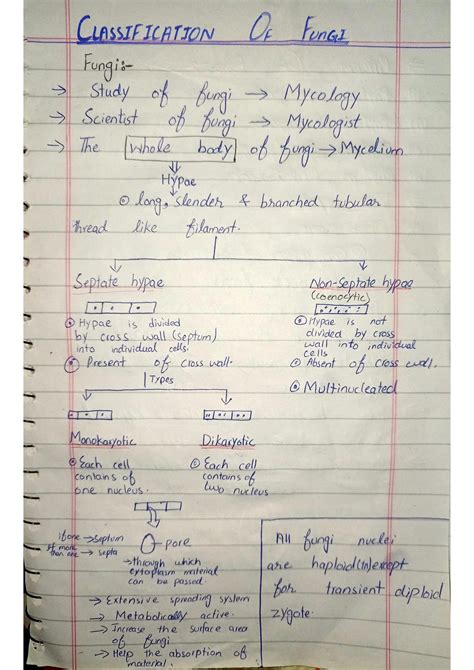 CLASSIFICATION OF FUNGI
Fungi:-
→ Study of fungi → Mycology
→ Scientist of fungi → Mycologist
→ The whole body of fungi → Mycelium
Hypae
long, slender & branched tubular
thread like filament.
Septate hypae
Hypae is divided
by cross wall (septum)
into individual cells.
Present of cross wall.
Types
Non-Septate hypae
(coenocytic)
Hypae is not
divided by cross
wall into individual
cells
Absent of cross wall.
Multinucleated
Monokaryotic
Each cell
contains of
one nucleus.
Dikaryotic
Each cell
contains of
two nucleus.
if one → septum
If more than one → septa
pore
→ through which
cytoplasm material
can be passed.
→ Extensive spreading system
→ Metabolically active.
→ Increase the surface area
of fungi
→ Help the absorption of
material.
All fungi nuclei
are haploid(1n) except
for transient diploid
zygote.